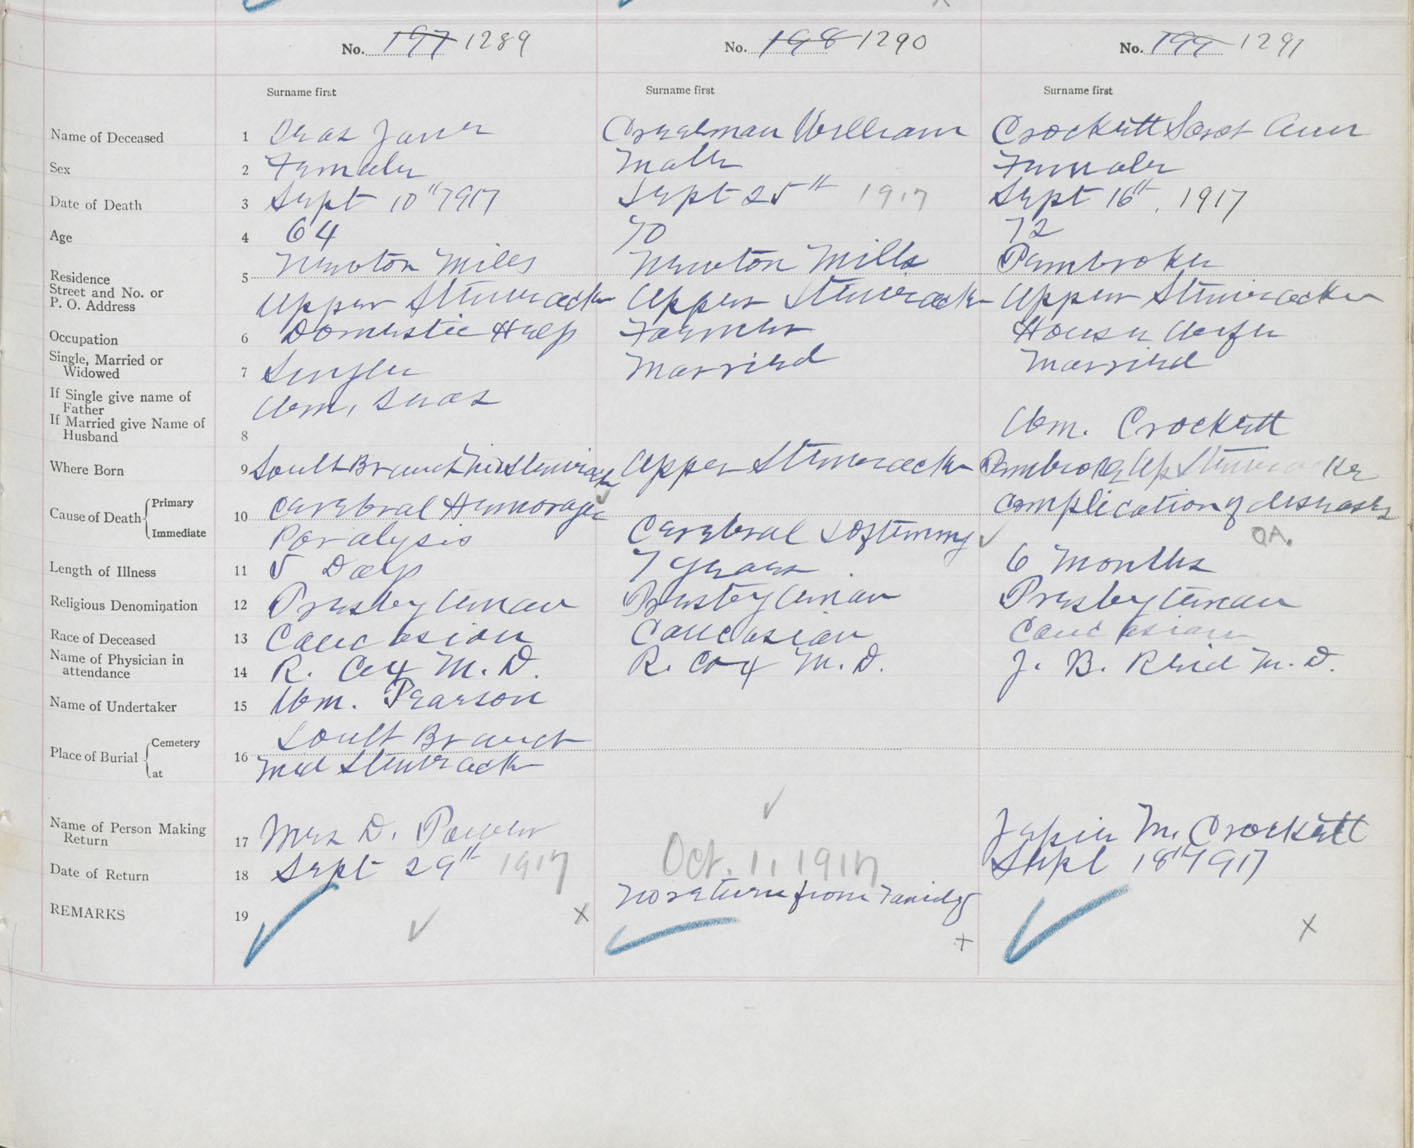 No. 197 1289 No. 198 1290 No. 199 1291
Surname first Surname first Surname first
Name of Deceased 1 Deas Jane Creelman William Crockett Sarah Ann
Sex 2 Female Male Female
Date of Death 3 Sept 10th 1917 Sept 25th 1917 Sept 16th, 1917
Age 4 64 70 72
Residence 5 Newton Mills Newton Mills Pembroke
Street and No. or
P. O. Address Upper Stewiacke Upper Stewiacke Upper Stewiacke
Occupation 6 Domestic Help Farmer House Wife
Single, Married or
Widowed 7 Single Married Married
If Single give name of
Father Wm. Deas
If Married give Name of
Husband 8 Wm. Crockett
Where Born 9 South Branch Mid Stewiacke Upper Stewiacke Pembroke Up Stewiacke
Cause of Death Primary 10 Cerebral Hemorage complication of diseases
Immediate Paralysis Cerebral Softening OA.
Length of Illness 11 5 Days 7 years 6 Months
Religious Denomination 12 Presbyterian Presbyterian Presbyterian
Race of Deceased 13 Caucasian Caucasian Caucasian
Name of Physician in
attendance 14 R. Cox M. D. R. Cox M. D. J. B. Reid M. D.
Name of Undertaker 15 Wm. Pearson
Place of Burial Cemetery 16 South Branch
at Mid Stewiacke
Name of Person Making
Return 17 Mrs D. M. Crockett
Date of Return 18 Sept 29th 1917 Oct. 1, 1917 Sept 18th 1917
REMARKS 19 No return from Family